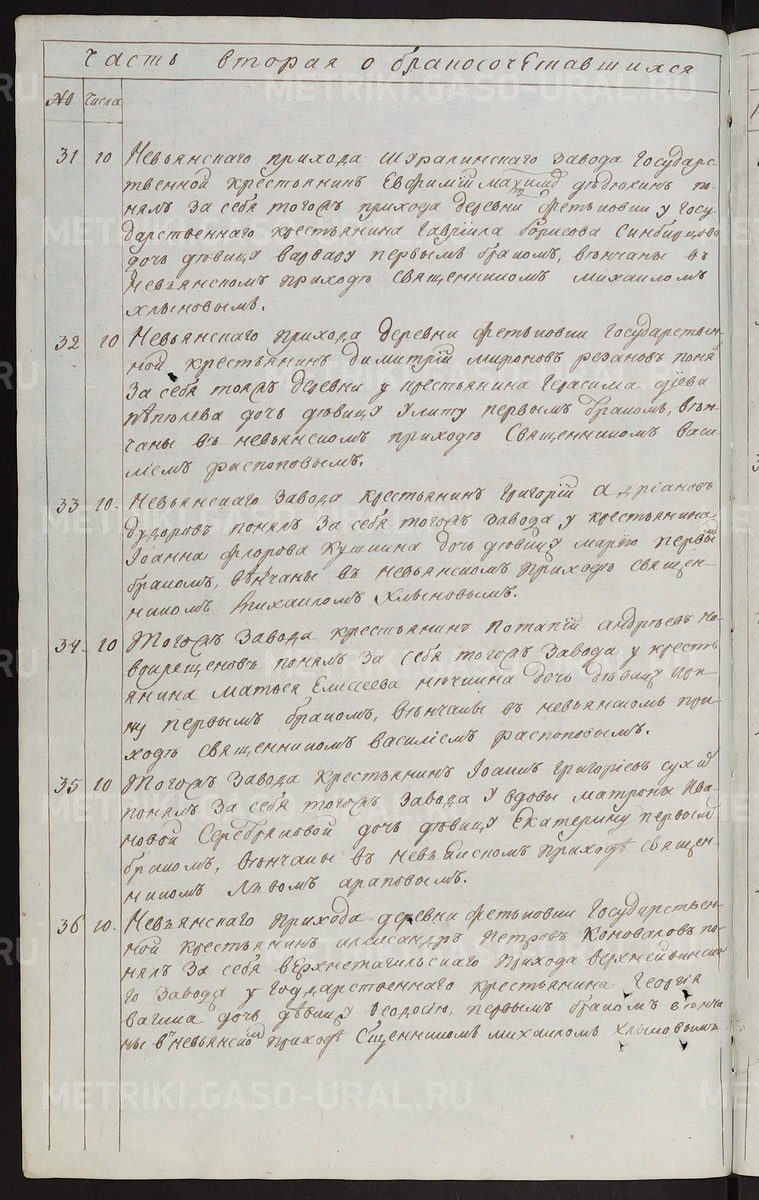 Часть вторая о бракосочетавшихся
№ числа
31 10 Невьянскаго прихода Шуралинскаго завода Государс-
твенной крестьянинъ Евфимий дѣдюхинъ по-
нялъ за себя тогожъ прихода деревни Фетьковки у Госу-
дарственнаго крестьянина Гаврiила Борисова Синбирцова
дочь дѣвицу варвару первымъ бракомъ, вѣнчаны въ
Невьянскомъ приходѣ священникомъ михаиломъ
хлыновымъ.
32 10 Невьянскаго прихода деревни Фетьковки Государствен-
ной крестьянинъ Димитрiй мироновъ резановъ поня
За себя тояжъ деревни у крестьянина Герасима
пѣпѣлева дочь дѣвицу Улиту первымъ бракомъ, вѣн-
чаны въ невьянскомъ приходѣ Священникомъ васи-
лiемъ распоповымъ.
33 10. Невьянскаго завода крестьянинъ григорiй адрiановъ
Дудоровъ понялъ за себя тогожъ завода у крестьянина
Iоанна Флорова кушкина дочь дѣвицу марiю первы
бракомъ, вѣнчаны въ невьянскомъ приходѣ священ-
никомъ михаиломъ хлыновымъ.
34 10 Тогожъ завода крестьянинъ потапiй андрѣевъ но-
вокрещеновъ понялъ за себя тогожъ завода у кресть
янина матвея Елисеева дочь дѣвицу
первымъ бракомъ, вѣнчаны въ невьянскомъ при-
ходѣ священникомъ василiемъ распоповымъ.
35 10 Тогожъ завода крестьянинъ Iоаннъ григорiевъ сухiй
понялъ за себя тогожъ завода у вдовы матроны ива-
новой Серебряковой дочь дѣвицу Екатерину первымъ
бракомъ, вѣнчаны въ невьянскомъ приходѣ священ-
никомъ львомъ араповымъ.
36 10. Невьянскаго прихода деревни Фетьковки Государствен-
ной крестьянинъ александръ петровъ коноваловъ по-
нялъ за себя верхнетагильскаго прихода верхнейвинска-
го завода у государственнаго крестьянина Георгiя
вагина дочь дѣвицу Ѳеодосiю, первымъ бракомъ вѣнча
ны в невьянском приходѣ Сщенникомъ михаиломъ хлыновымъ
METRIKI.GASO-URAL.RU